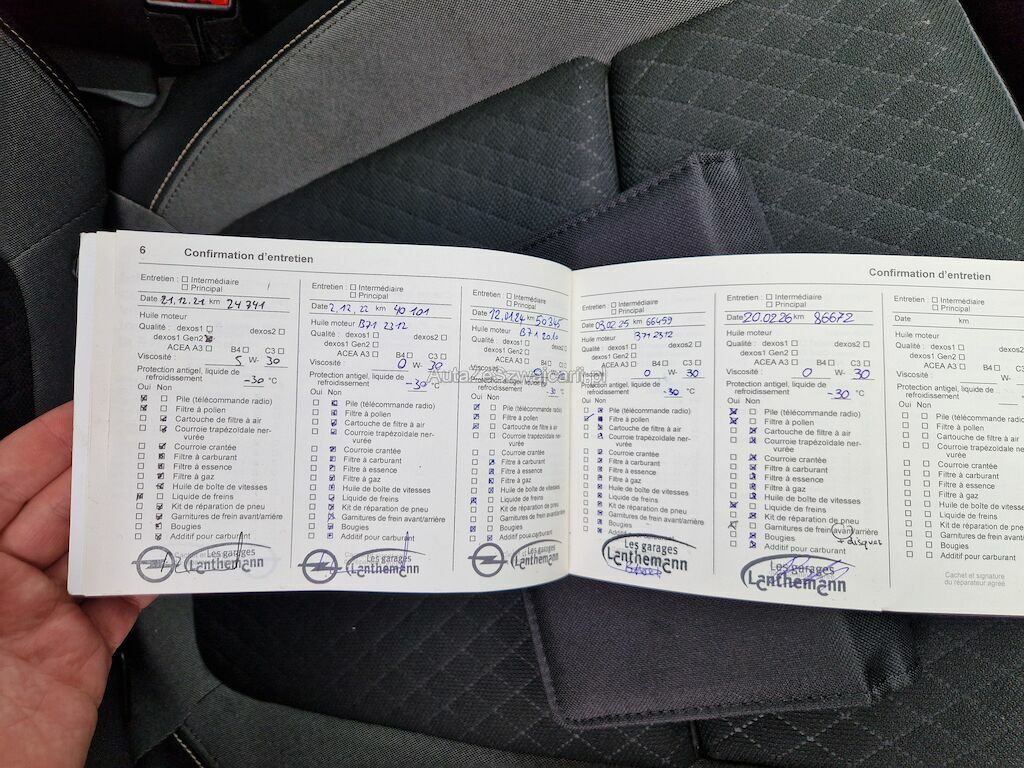 6 Confirmation d'entretien
Entretien : Intermédiaire
Principal
Date 21.12.21 km 24741
Huile moteur
Qualité : dexos1 dexos2
dexos1 Gen2
ACEA A3 B4 C3
Viscosité : 5 W- 30
Protection antigel, liquide de
refroidissement -30 °C
Oui Non
Pile (télécommande radio)
Filtre à pollen
Cartouche de filtre à air
Courroie trapézoïdale ner-
vurée
Courroie crantée
Filtre à carburant
Filtre à essence
Filtre à gaz
Huile de boîte de vitesses
Liquide de freins
Kit de réparation de pneu
Garnitures de frein avant/arrière
Bougies
Additif pour carburant
Les garages
Lanthemann
Entretien : Intermédiaire
Principal
Date 2.12.22 km 40101
Huile moteur B71 2312
Qualité : dexos1 dexos2
dexos1 Gen2
ACEA A3 B4 C3
Viscosité : 0 W- 30
Protection antigel, liquide de
refroidissement -30 °C
Oui Non
Pile (télécommande radio)
Filtre à pollen
Cartouche de filtre à air
Courroie trapézoïdale ner-
vurée
Courroie crantée
Filtre à carburant
Filtre à essence
Filtre à gaz
Huile de boîte de vitesses
Liquide de freins
Kit de réparation de pneu
Garnitures de frein avant/arrière
Bougies
Additif pour carburant
Les garages
Lanthemann
Entretien : Intermédiaire
Principal
Date 12.01.24 km 50345
Huile moteur B71 2010
Qualité : dexos1 dexos2
dexos1 Gen2
ACEA A3 B4 C3
Viscosité
Protection antigel, liquide de
refroidissement -30 °C
Oui Non
Pile (télécommande radio)
Filtre à pollen
Cartouche de filtre à air
Courroie trapézoïdale ner-
vurée
Courroie crantée
Filtre à carburant
Filtre à essence
Filtre à gaz
Huile de boîte de vitesses
Liquide de freins
Kit de réparation de pneu
Garnitures de frein avant/arrière
Bougies
Additif pour carburant
Les garages
Lanthemann
Confirmation d'entretien
Entretien : Intermédiaire
Principal
Date 03.02.25 km 66459
Huile moteur B71 2312
Qualité : dexos1 dexos2
dexos1 Gen2
ACEA A3 B4 C3
0 W- 30
Protection antigel, liquide de
refroidissement -30 °C
Oui Non
Pile (télécommande radio)
Filtre à pollen
Cartouche de filtre à air
Courroie trapézoïdale ner-
vurée
Courroie crantée
Filtre à carburant
Filtre à essence
Filtre à gaz
Huile de boîte de vitesses
Liquide de freins
Kit de réparation de pneu
Garnitures de frein avant/arrière
Bougies
Additif pour carburant
Les garages
Lanthemann
Entretien : Intermédiaire
Principal
Date 20.02.26 km 86672
Huile moteur
Qualité : dexos1 dexos2
dexos1 Gen2
ACEA A3 B4 C3
Viscosité : 0 W- 30
Protection antigel, liquide de
refroidissement -30 °C
Oui Non
Pile (télécommande radio)
Filtre à pollen
Cartouche de filtre à air
Courroie trapézoïdale ner-
vurée
Courroie crantée
Filtre à carburant
Filtre à essence
Filtre à gaz
Huile de boîte de vitesses
Liquide de freins
Kit de réparation de pneu
Garnitures de frein avant/arrière
+ disques
Bougies
Additif pour carburant
Les garages
Lanthemann
Entretien : Intermédiaire
Principal
Date km
Huile moteur
Qualité : dexos1
dexos1 Gen2
ACEA A3 B4
Viscosité : W-
Protection antigel, liquide de
refroidissement
Oui Non
Pile (télécommande radio)
Filtre à pollen
Cartouche de filtre à air
Courroie trapézoïdale ner-
vurée
Courroie crantée
Filtre à carburant
Filtre à essence
Filtre à gaz
Huile de boîte de vitesses
Liquide de freins
Kit de réparation de pneu
Garnitures de frein avant/arrière
Bougies
Additif pour carburant
Cachet et signature
du réparateur agréé
AutazeSzwajcarii.pl